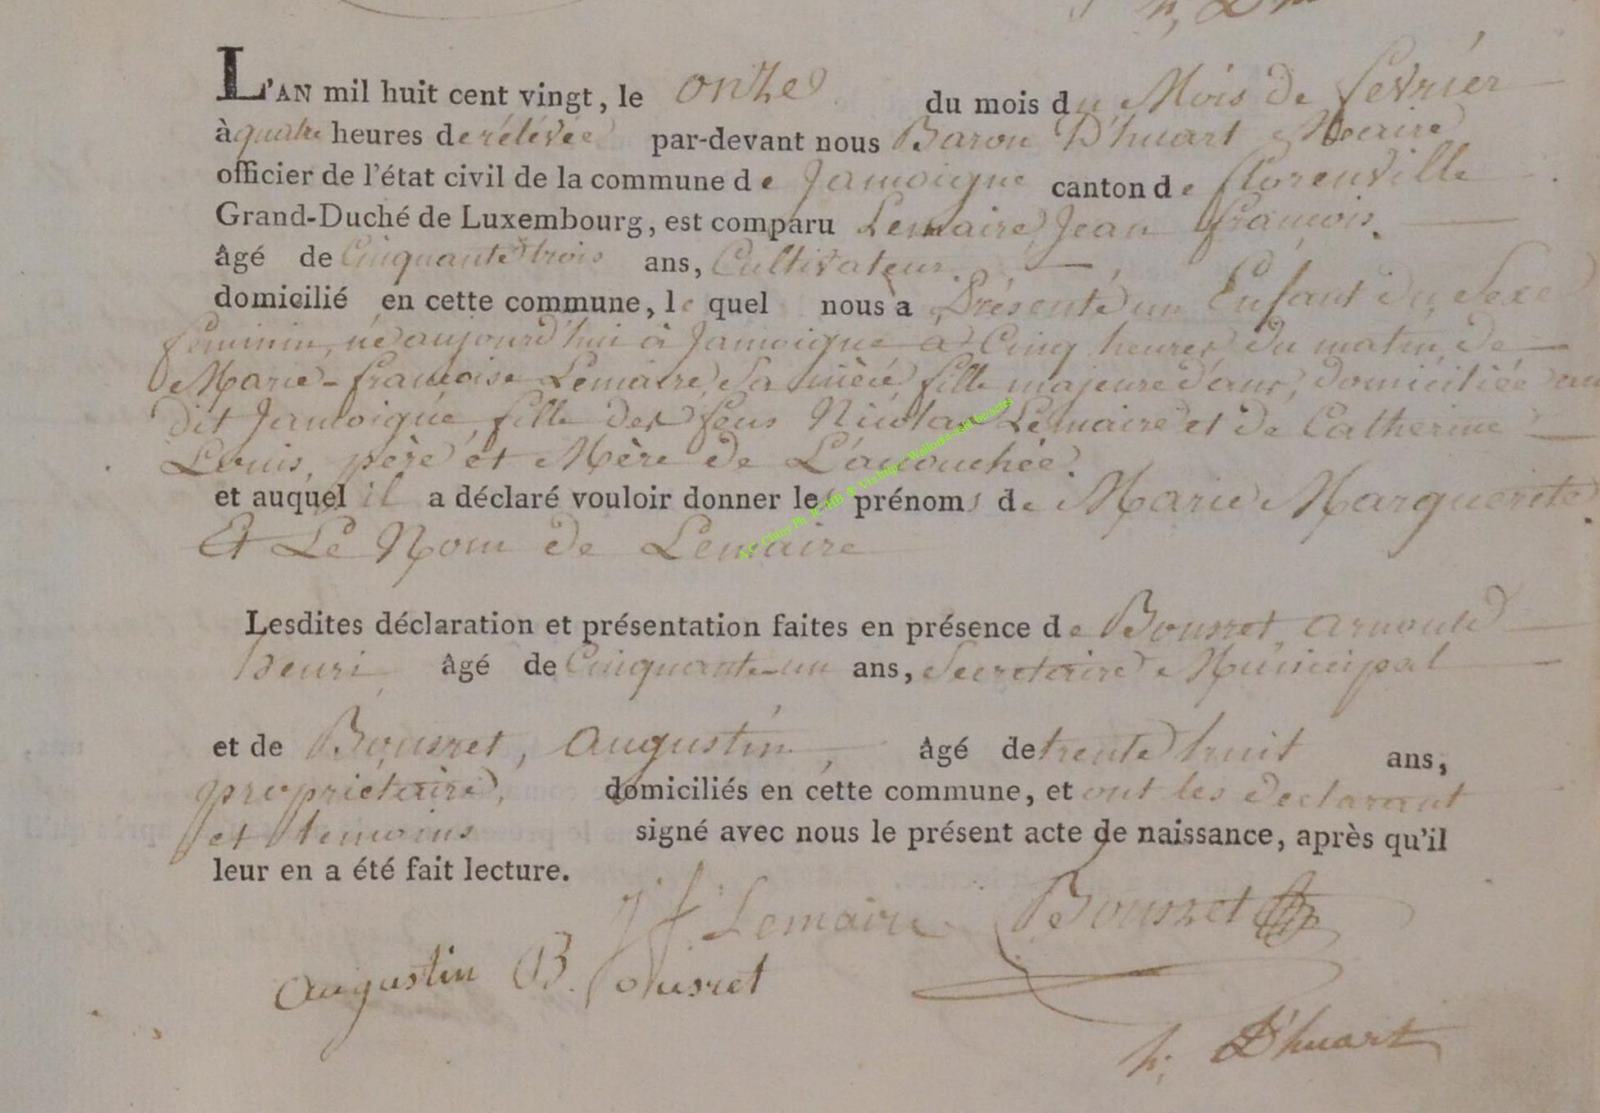 h; D'hu
L'AN mil huit cent vingt, le onze du mois du Mois de fevrier
à quatre heures de rélévée par-devant nous Baron D'huart Maire
officier de l'état civil de la commune de Jamoigne canton de florenville
Grand-Duché de Luxembourg, est comparu Lemaire, Jean françois.
âgé de Cinquante trois ans, Cultivateur.
domicilié en cette commune, le quel nous a Présenté un Enfant du Sexe
feminin, né aujourd'hui à Jamoigne a Cinq heures du matin, de
Marie-françoise Lemaire, sa fille majeure d'ans, domiciliée au
dit Jamoigne, fille des feus Nicolas Lemaire et de Catherine
Louis, père et Mère de L'acouchée.
et auquel il a déclaré vouloir donner les prénoms de Marie Marguerite.
Et Le Nom de Lemaire
Lesdites déclaration et présentation faites en présence de Bousret, arnould
henri, âgé de Cinquante-un ans, Secretaire Municipal
et de Bousret, augustin, âgé de trente huit ans,
proprietaire, domiciliés en cette commune, et ont les declarant
et temoins signé avec nous le présent acte de naissance, après qu'il
leur en a été fait lecture.
J f Lemaire Bousret
augustin B. Bousret
h; D'huart